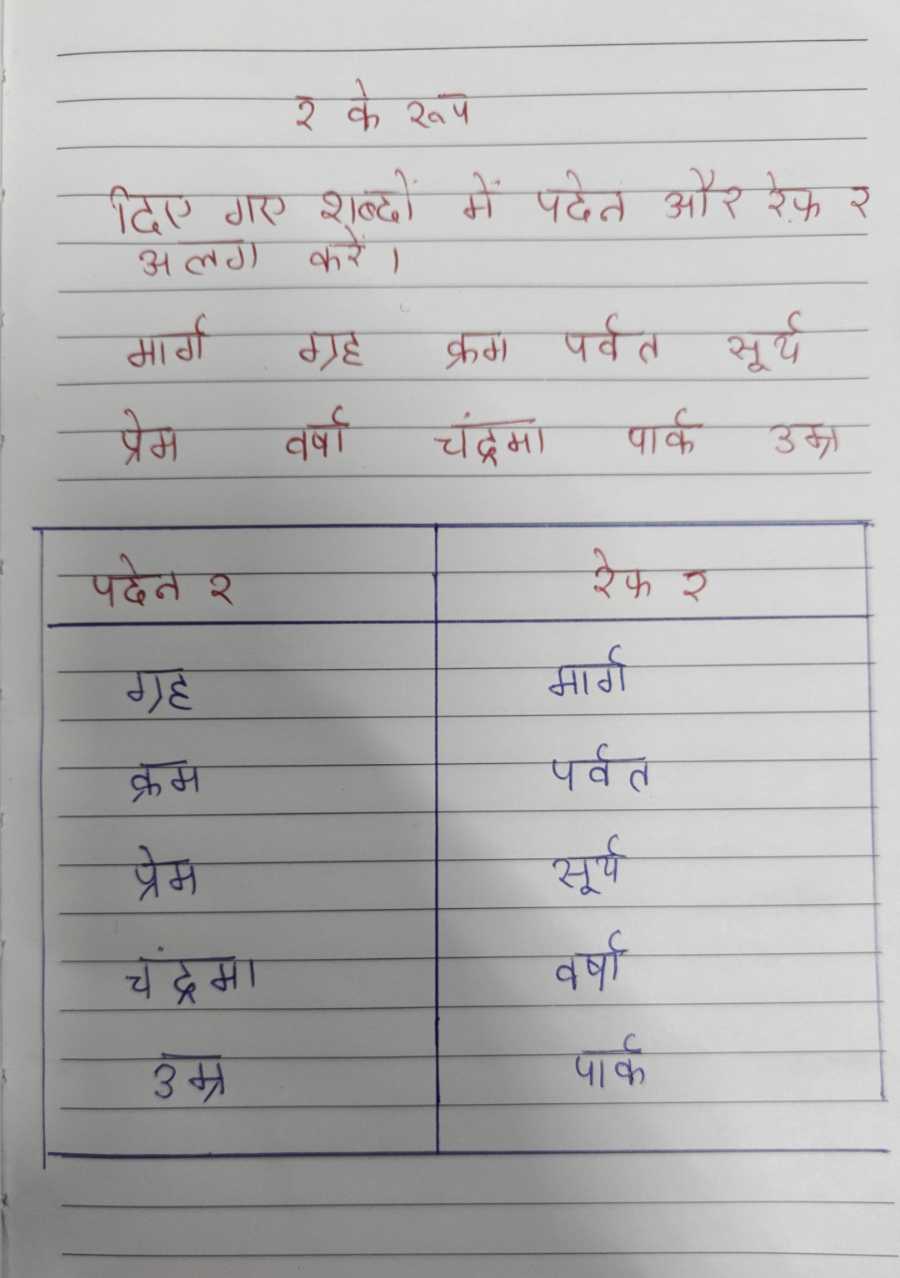 र के रूप
दिए गए शब्दों में पदेन और रेफ़ र
अलग करें।
मार्ग ग्रह क्रम पर्वत सूर्य
प्रेम वर्षा चंद्रमा पार्क उम्र
पदेन र रेफ र
ग्रह मार्ग
क्रम पर्वत
प्रेम सूर्य
चंद्रमा वर्षा
उम्र पार्क